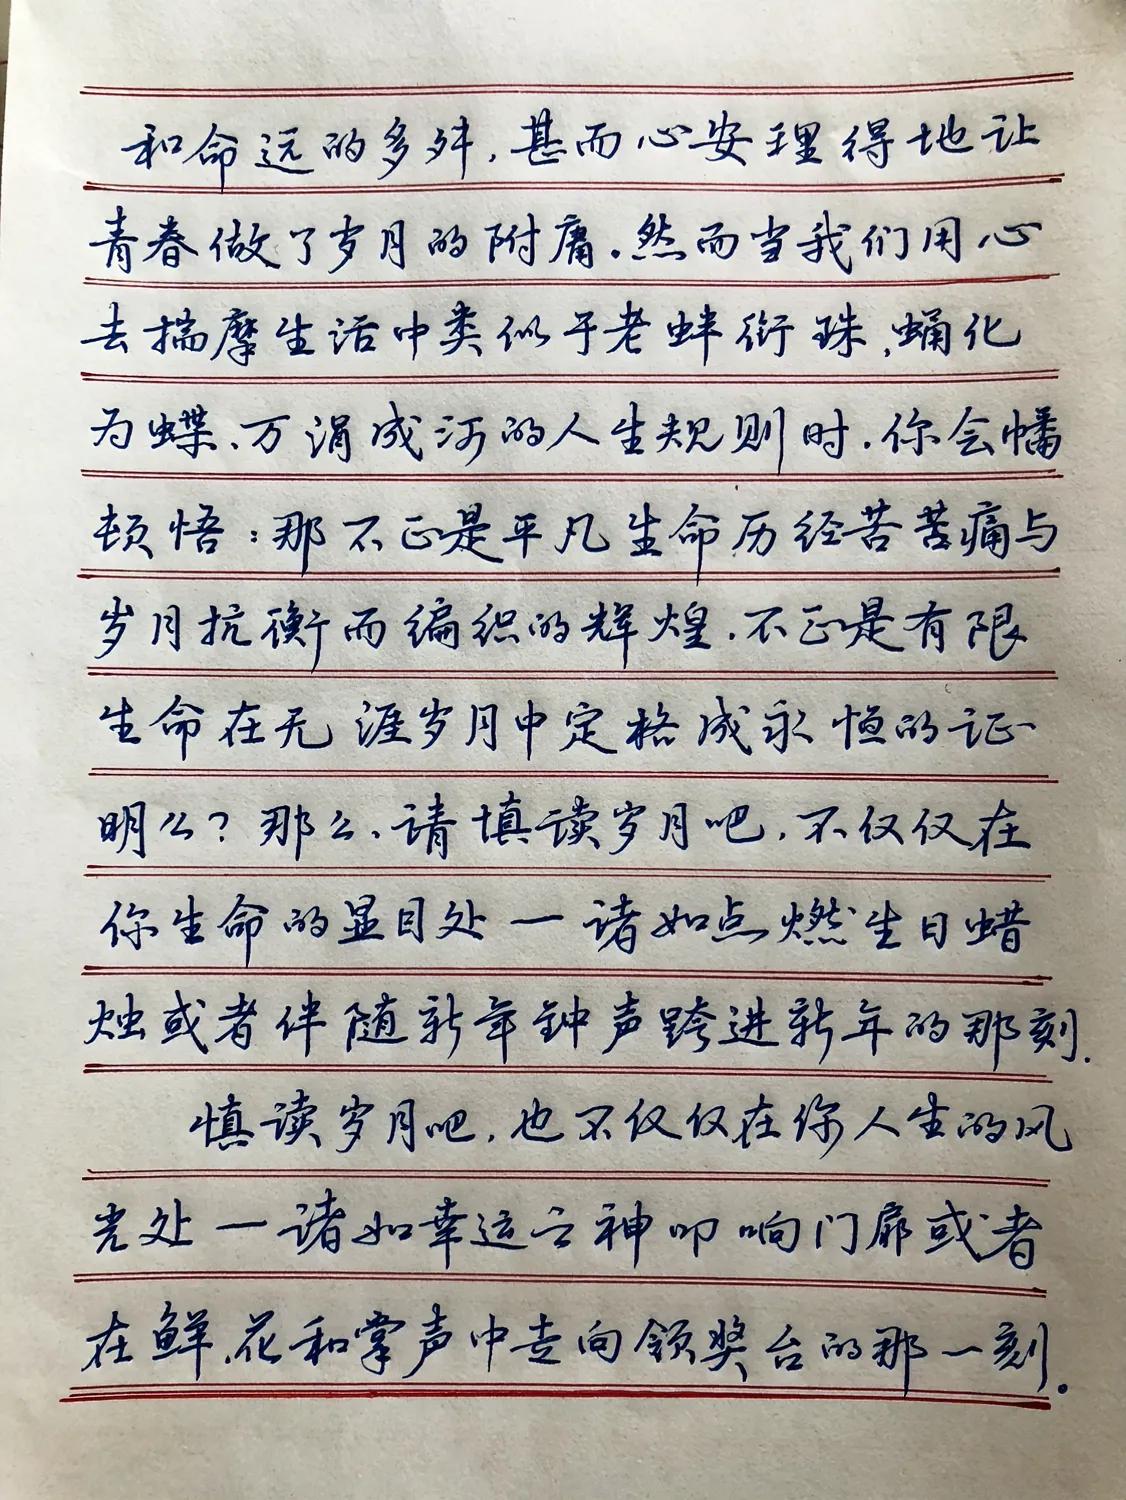 和命运的多舛，甚而心安理得地让
青春做了岁月的附庸。然而当我们用心
去揣摩生活中类似于老蚌衔珠、蛹化
为蝶、万涓成河的人生规则时，你会幡
顿悟：那不正是平凡生命历经苦苦痛与
岁月抗衡而编织的辉煌，不正是有限
生命在无涯岁月中定格成永恒的证
明么？那么、请慎读岁月吧，不仅仅在
你生命的显目处一诸如点燃生日蜡
烛或者伴随新年钟声跨进新年的那刻.
慎读岁月吧，也不仅仅在你人生的风
光处一诸如幸运之神叩响门扉或者
在鲜花和掌声中走向领奖台的那一刻.